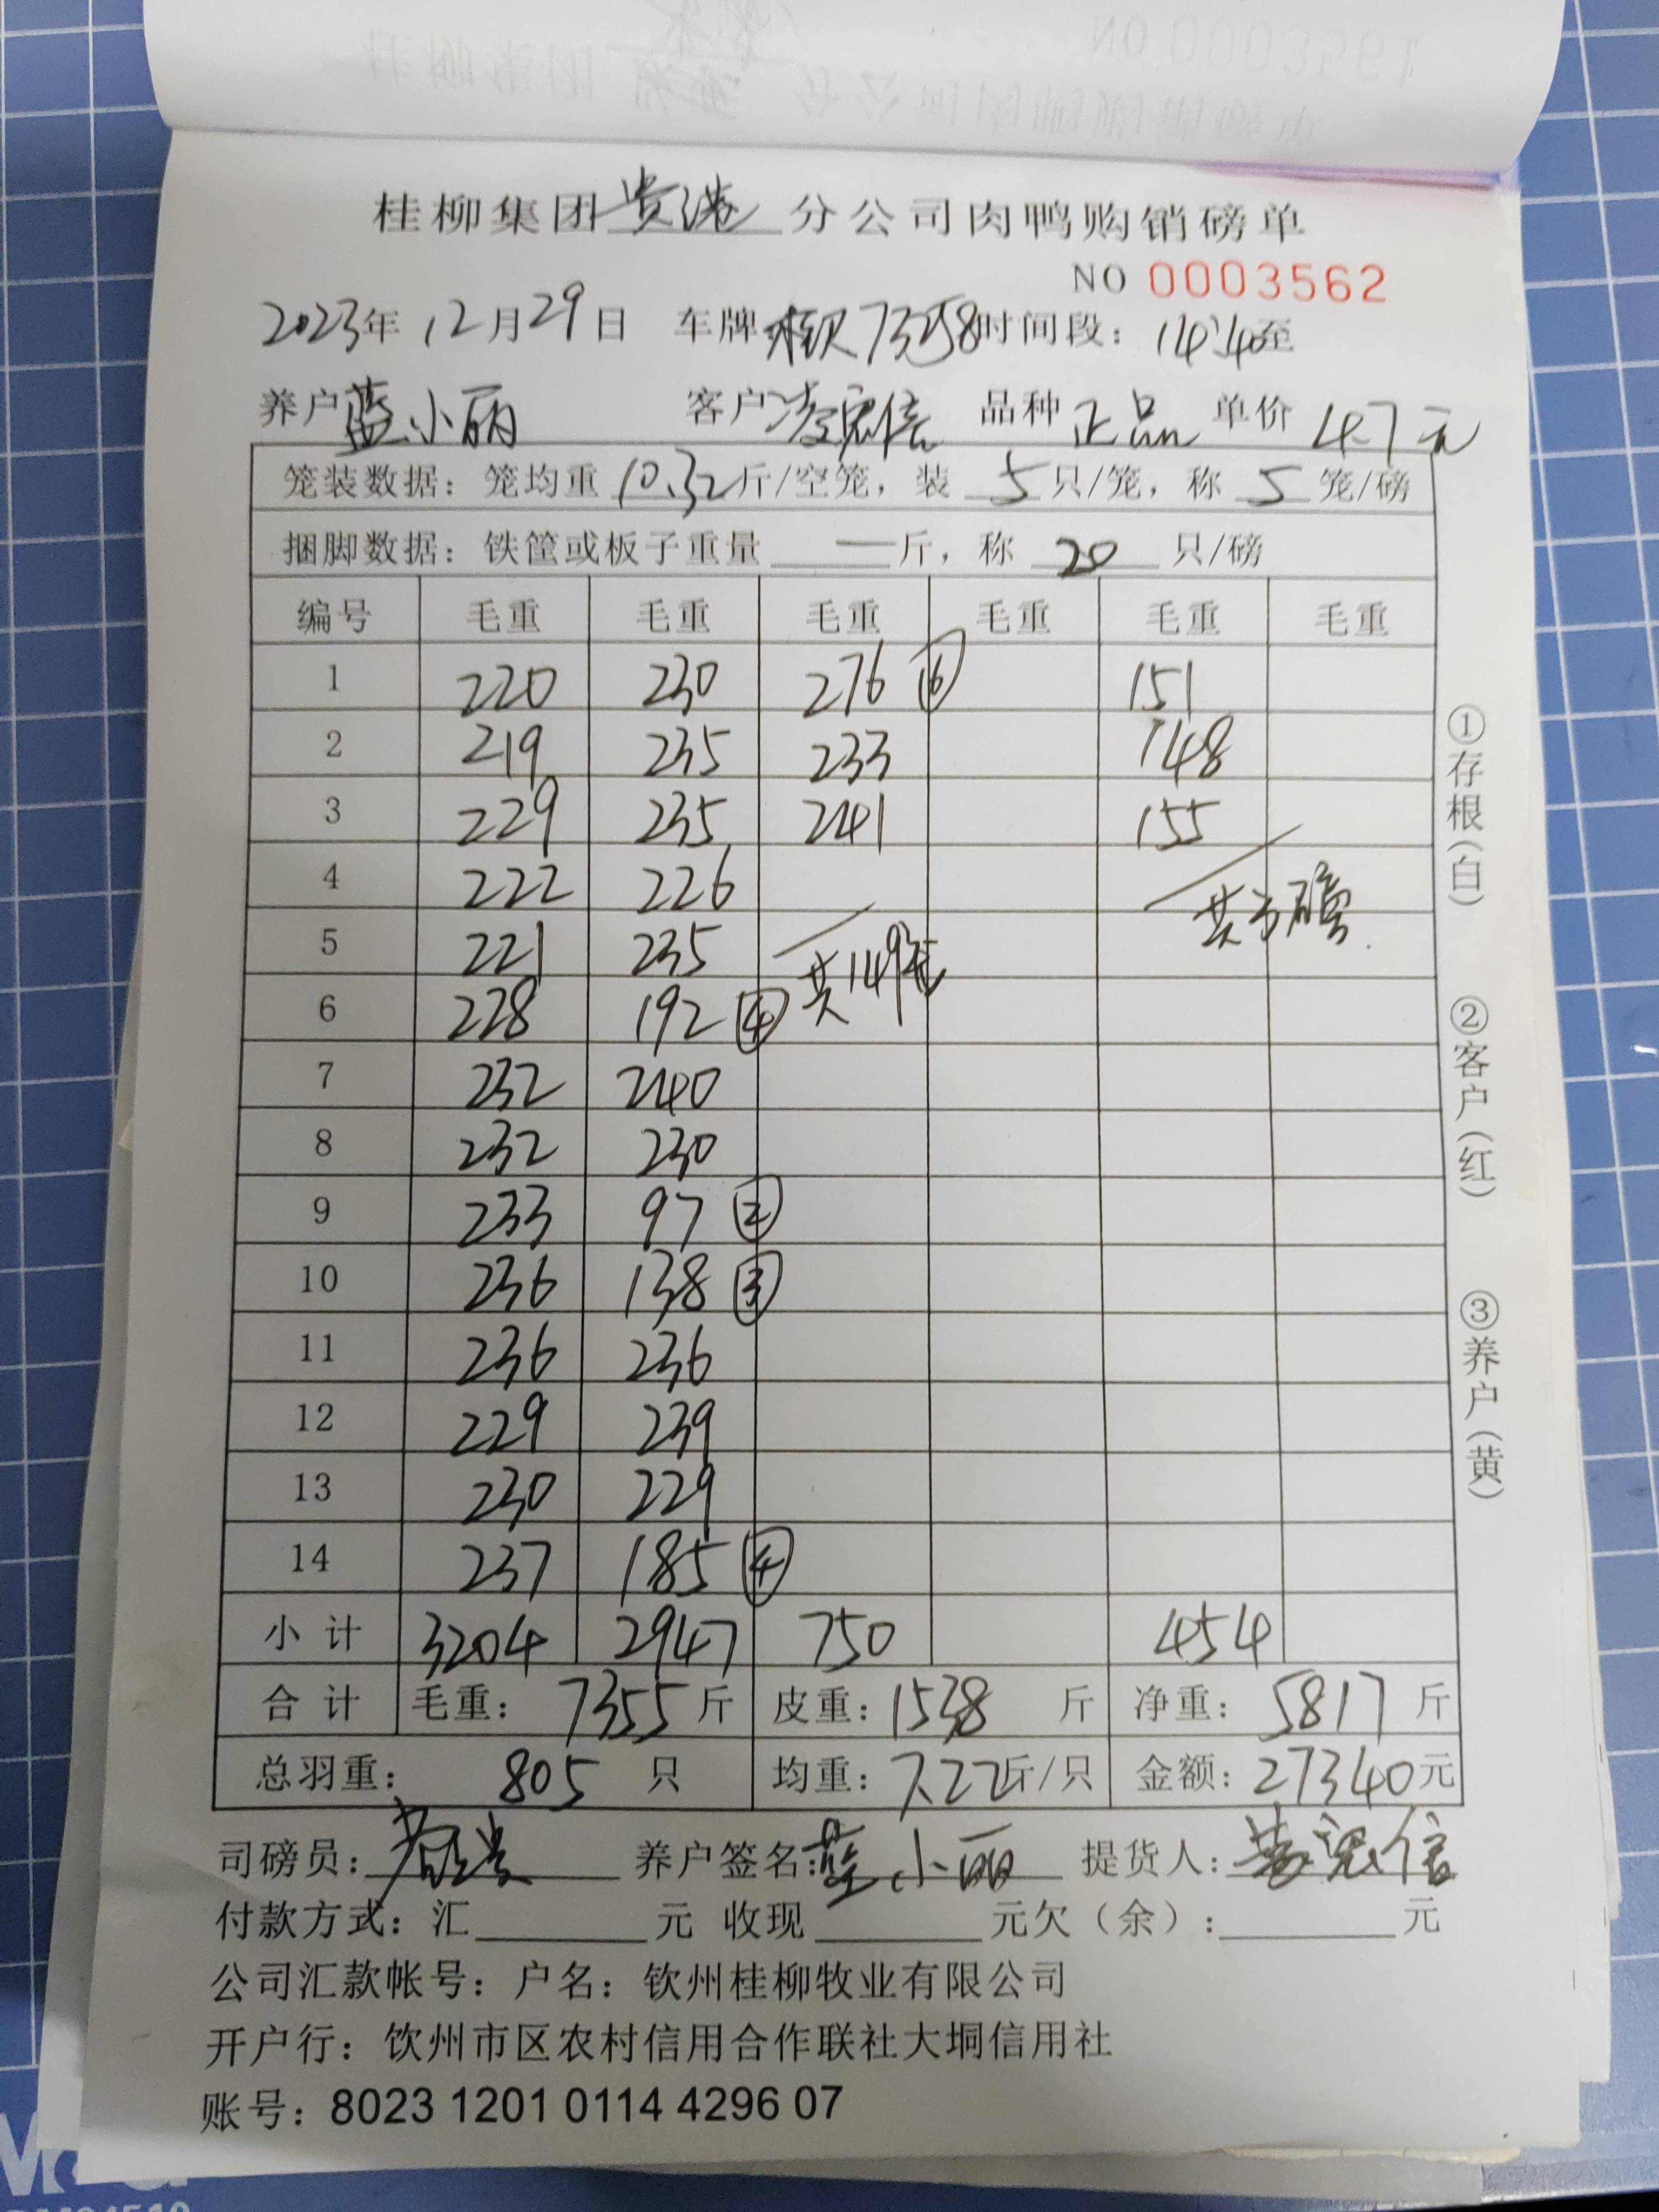 桂柳集团贵港分公司肉鸭购销磅单
NO 0003562
2023年12月29日 车牌 7358 时间段：14:40至
养户 蓝小丽 客户 凌宪信 品种 正品 单价 4.7元
笼装数据：笼均重 10.32 斤/空笼，装 5 只/笼，称 5 笼/磅
捆脚数据：铁筐或板子重量 — 斤，称 20 只/磅
编号 毛重 毛重 毛重 毛重 毛重 毛重
1 220 230 276 ⑥ 151
2 219 235 233 148
3 229 235 241 155
4 222 226
共3磅
5 221 235
共149笼
6 228 192 ④
7 232 240
8 232 230
9 233 97 ②
10 236 138 ③
11 236 236
12 229 239
13 230 229
14 237 185 ④
小计 3204 2947 750 454
合计 毛重：7355斤 皮重：1538 斤 净重：5817 斤
总羽重：805 只 均重：7.22斤/只 金额：27340元
司磅员： 养户签名：蓝小丽 提货人：凌宪信
付款方式：汇 元 收现 元欠（余）： 元
公司汇款帐号：户名：钦州桂柳牧业有限公司
开户行：钦州市区农村信用合作联社大垌信用社
账号：8023 1201 0114 4296 07
①存根（白）
②客户（红）
③养户（黄）